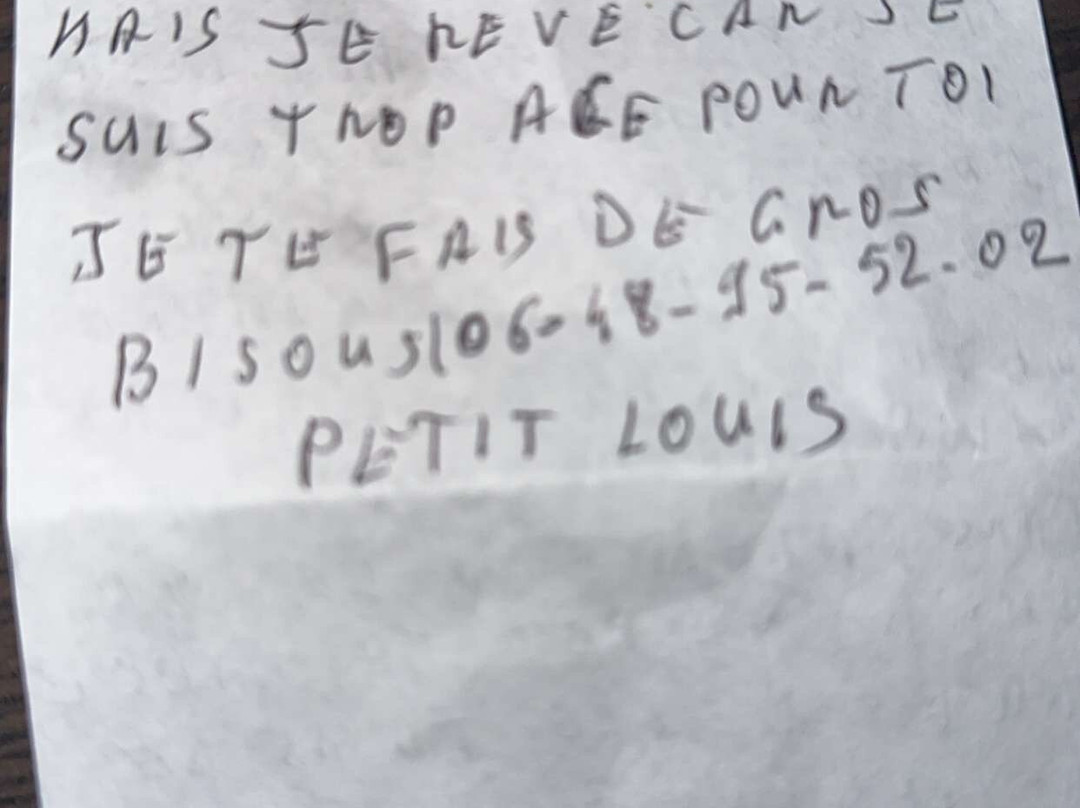 MAIS JE REVE CAR JE
SUIS TROP AGE POUR TOI
JE TE FAIS DE GROS
BISOUS 06-48-95-52.02
PETIT LOUIS